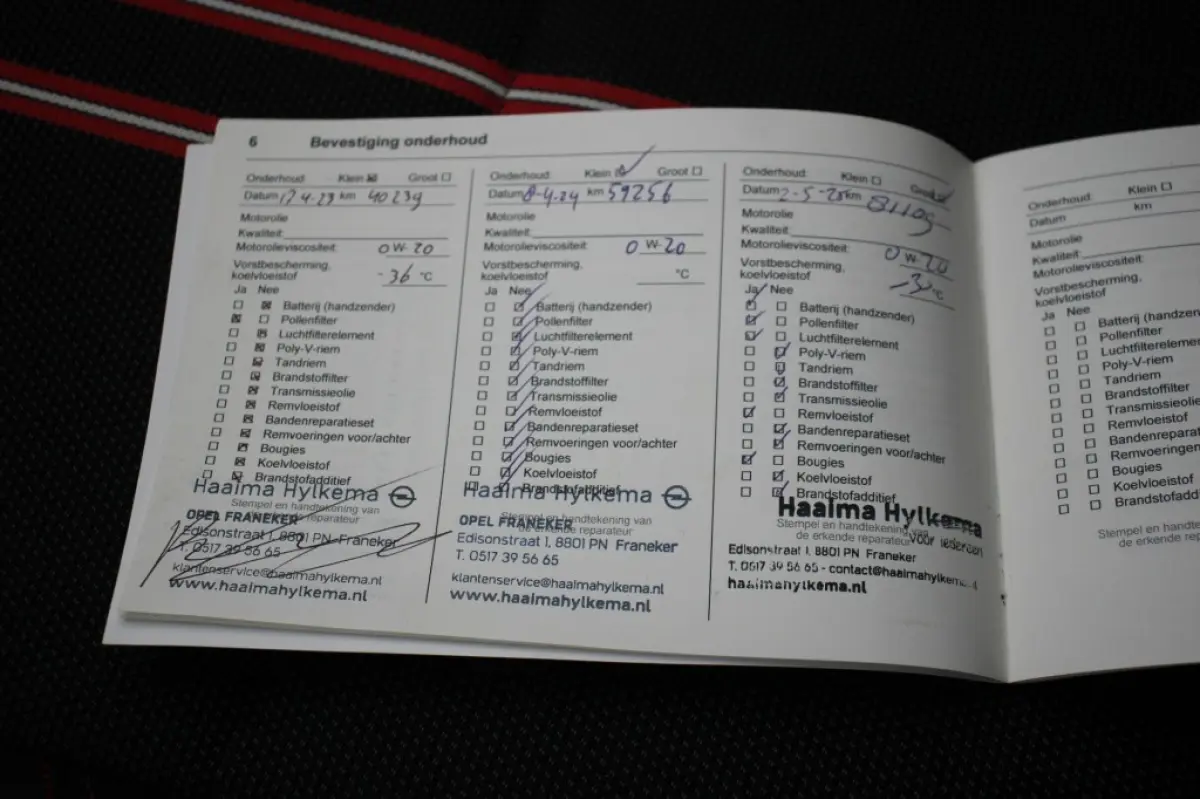 6 Bevestiging onderhoud
Onderhoud: Klein ☒ Groot ☐
Datum 17 4.23 km 40239
Motorolie
Kwaliteit:
Motorolieviscositeit: 0 W-20
Vorstbescherming,
koelvloeistof -36 °C
Ja Nee
☐ ☒ Batterij (handzender)
☒ ☐ Pollenfilter
☐ ☒ Luchtfilterelement
☐ ☒ Poly-V-riem
☐ ☒ Tandriem
☐ ☒ Brandstoffilter
☐ ☒ Transmissieolie
☐ ☒ Remvloeistof
☐ ☒ Bandenreparatieset
☐ ☒ Remvoeringen voor/achter
☐ ☒ Bougies
☐ ☒ Koelvloeistof
☐ ☒ Brandstofadditief
Haaima Hylkema
Stempel en handtekening van
de erkende reparateur
OPEL FRANEKER
Edisonstraat 1, 8801 PN Franeker
T. 0517 39 56 65
klantenservice@haaimahylkema.nl
www.haaimahylkema.nl
Onderhoud: Klein ☑ Groot ☐
Datum 8-4.24 km 59256
Motorolie
Kwaliteit:
Motorolieviscositeit: 0 W-20
Vorstbescherming,
koelvloeistof °C
Ja Nee
☐ ☑ Batterij (handzender)
☐ ☑ Pollenfilter
☐ ☑ Luchtfilterelement
☐ ☑ Poly-V-riem
☐ ☑ Tandriem
☐ ☑ Brandstoffilter
☐ ☑ Transmissieolie
☐ ☑ Remvloeistof
☐ ☑ Bandenreparatieset
☐ ☑ Remvoeringen voor/achter
☐ ☑ Bougies
☐ ☑ Koelvloeistof
☐ ☑ Brandstofadditief
Haaima Hylkema
Stempel en handtekening van
de erkende reparateur
OPEL FRANEKER
Edisonstraat 1, 8801 PN Franeker
T. 0517 39 56 65
klantenservice@haaimahylkema.nl
www.haaimahylkema.nl
Onderhoud: Klein ☐ Groot ☑
Datum 2-5-25 km 81109
Motorolie
Kwaliteit:
Motorolieviscositeit: 0 W-20
Vorstbescherming,
koelvloeistof -30 °C
Ja Nee
☑ ☐ Batterij (handzender)
☑ ☐ Pollenfilter
☑ ☐ Luchtfilterelement
☐ ☑ Poly-V-riem
☐ ☑ Tandriem
☐ ☑ Brandstoffilter
☐ ☑ Transmissieolie
☑ ☐ Remvloeistof
☐ ☑ Bandenreparatieset
☐ ☑ Remvoeringen voor/achter
☑ ☐ Bougies
☐ ☑ Koelvloeistof
☐ ☑ Brandstofadditief
Haaima Hylkema
voor iedereen
Stempel en handtekening van
de erkende reparateur
Edisonstraat 1, 8801 PN Franeker
T. 0517 39 56 65 - contact@haaimahylkema.nl
haaimahylkema.nl
Onderhoud: Klein ☐
Datum km
Motorolie
Kwaliteit:
Motorolieviscositeit:
Vorstbescherming,
koelvloeistof
Ja Nee
☐ ☐ Batterij (handzender
☐ ☐ Pollenfilter
☐ ☐ Luchtfilterelement
☐ ☐ Poly-V-riem
☐ ☐ Tandriem
☐ ☐ Brandstoffilter
☐ ☐ Transmissieolie
☐ ☐ Remvloeistof
☐ ☐ Bandenreparat
☐ ☐ Remvoeringen
☐ ☐ Bougies
☐ ☐ Koelvloeistof
☐ ☐ Brandstofadd
Stempel en hand
de erkende